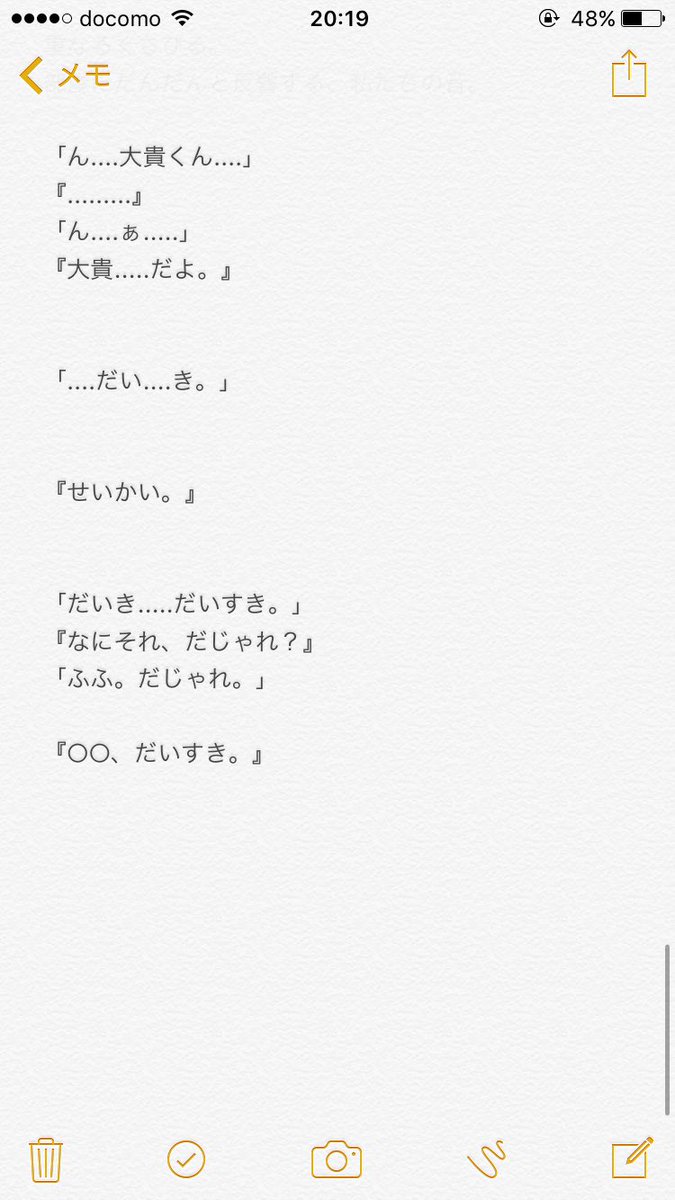 docomo
20:19
48%
メモ
「ん....大貴くん....」
『.........』
「ん....ぁ.....」
『大貴.....だよ。』
「....だい....き。」
『せいかい。』
「だいき.....だいすき。」
『なにそれ、だじゃれ？』
「ふふ。だじゃれ。」
『〇〇、だいすき。』